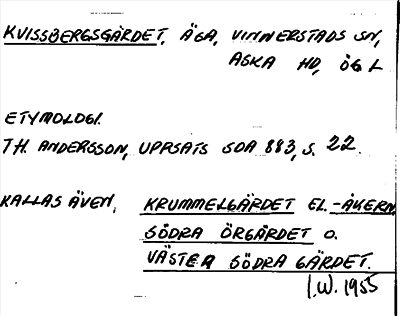 KVISSBERGSGÄRDET, ÄGA, VINNERSTADS SN,
ASKA HD, ÖG L
ETYMOLOGI.
TH. ANDERSSON, UPPSATS SOA 883, S. 22.
KALLAS ÄVEN, KRUMMELGÄRDET EL. -ÅKERN
SÖDRA ÖRGÄRDET O.
VÄSTER SÖDRA GÄRDET.
I.W. 1955